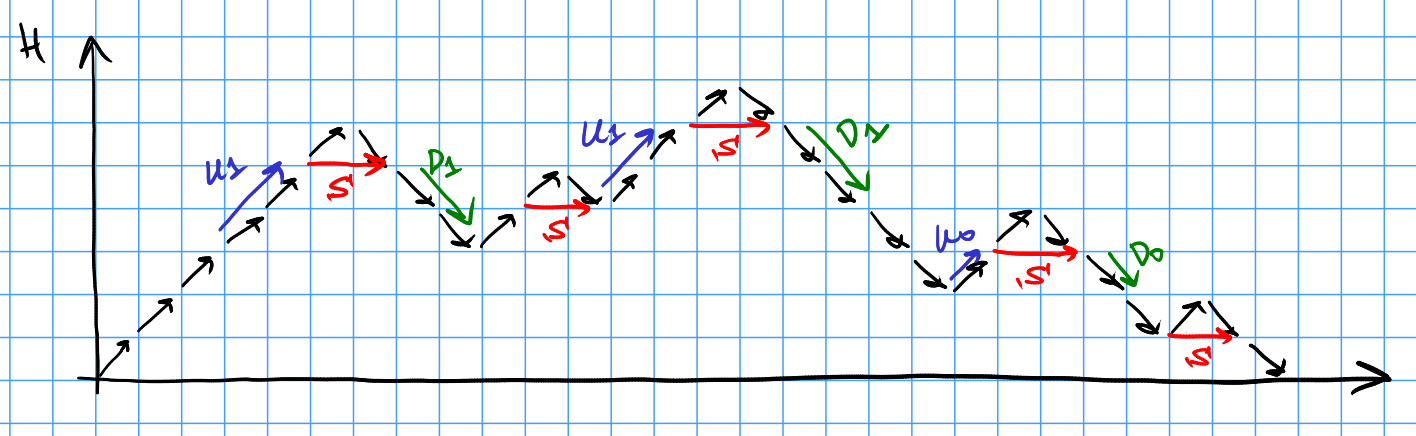 H
U1
S
D1
S
U1
S
D1
U0
S
D0
S